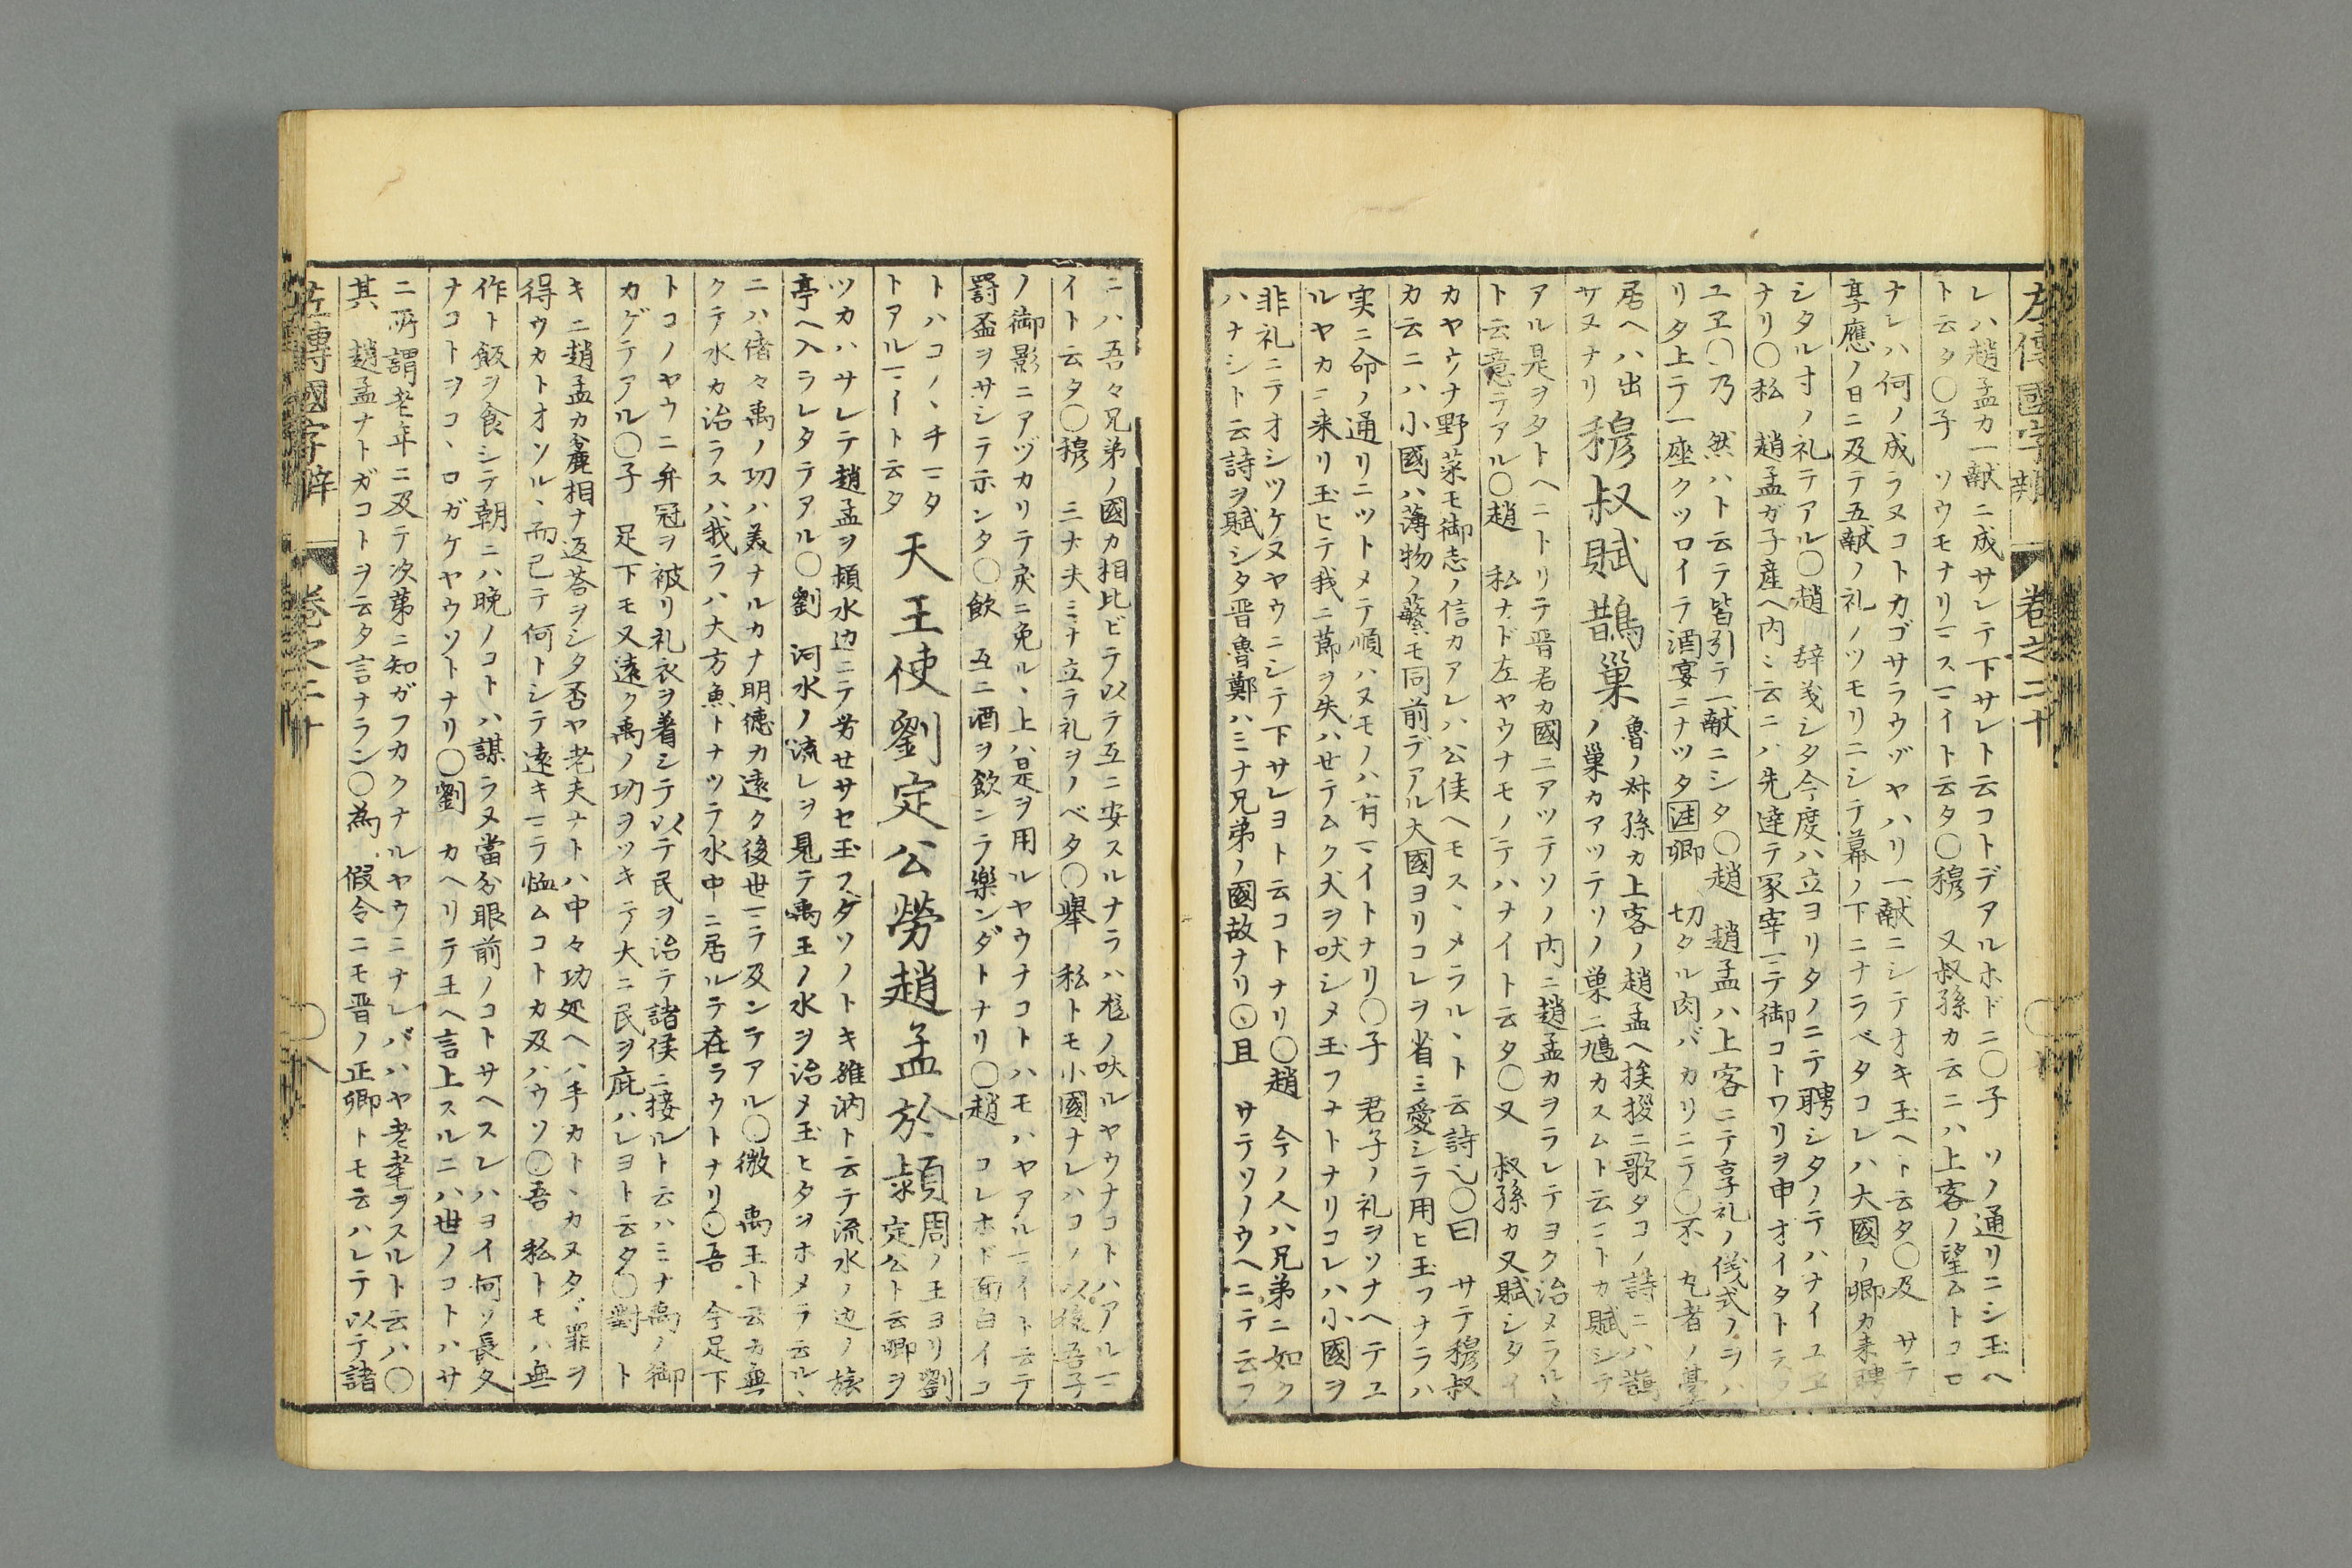 左傳國字辯 卷之二十
レハ趙孟カ一献ニ成サレテ下サレト云コトデアルホドニ〇子 ソノ通リニシ玉ヘ
ト云タ〇子 ソウモナリマスマイト云タ〇穆 又叔孫カ云ニハ上客ノ望ムトコロ
ナレハ何ノ成ラヌコトカゴサラウゾヤハリ一献ニシテオキ玉ヘト云タ〇及 サテ
享應ノ日ニ及テ五献ノ礼ノツモリニシテ幕ノ下ニナラベタコレハ大國ノ卿カ来聘
シタル寸ノ礼テアル〇趙 辞義シタ今度ハ立ヨリタノニテ聘シタノテハナイユヱ
ナリ〇私 趙孟ガ子産ヘ内ミ云ニハ先達テ冢宰マテ御コトワリヲ申オイタトテ
ユヱ〇乃 然ハト云テ皆引テ一献ニシタ〇趙 趙孟ハ上客ニテ享礼ノ儀式ノヲハ
リタ上テ一座クツロイテ酒宴ニナツタ注卿 切タル肉バカリニテ〇不 老者ノ臺
居ヘハ出
サヌナリ
穆叔賦鵲巢
魯ノ叔孫カ上客ノ趙孟ヘ挨拶ニ歌タコノ詩ニハ鵲
ノ巢カアツテソノ巣ニ鳩カスムト云コトカ賦シテ
アル是ヲタトヘニトリテ晋君カ國ニアツテソノ内ニ趙孟カヲラレテヨク治メラル
ト云意テアル〇趙 私ナド左ヤウナモノテハナイト云タ〇又 叔孫カ又賦シタイ
カヤウナ野菜モ御志ノ信カアレハ公侯ヘモスヽメラルヽト云詩也〇曰 サテ穆叔
カ云ニハ小國ハ薄物ノ蘩モ同前デアル大國ヨリコレヲ省ミ愛シテ用ヒ玉フナラハ
実ニ命ノ通リニツトメテ順ハヌモノハ有マイトナリ〇子 君子ノ礼ヲソナヘテユ
ルヤカニ来リ玉ヒテ我ニ節ヲ失ハセテムク犬ヲ吠シメ玉フナトナリコレハ小國ヲ
非礼ニテオシツケヌヤウニシテ下サレヨト云コトナリ〇趙 今ノ人ハ兄弟ニ如ク
ハナシト云詩ヲ賦シタ晋魯鄭ハミナ兄弟ノ國故ナリ〇且 サテソノウヘニテ云フ
ニハ吾々兄弟ノ國カ相比ビテ以テ互ニ安スルナラハ尨ノ吠ルヤウナコトハアルマ
イト云タ〇穆 三大夫ミナ立テ礼ヲノベタ〇舉 私トモ小國ナレハコノ以後吾子
ノ御影ニアヅカリテ戻ニ免ルヽ上ハ是ヲ用ルヤウナコトハモハヤアルマイト云テ
罸盃ヲサシテ示シタ〇飲 互ニ酒ヲ飲ンテ樂ンダトナリ〇趙 コレホド面白イコ
トハコノヽチマタ
トアルマイト云タ
天王使劉定公勞趙孟於潁
周ノ王ヨリ劉
定公ト云卿ヲ
ツカハサレテ趙孟ヲ頴水辺ニテ労セサセ玉フゲソノトキ雒汭ト云テ流水ノ辺ノ旅
亭ヘ入ラレタテアル〇劉 河水ノ流レヲ見テ禹王ノ水ヲ治メ玉ヒタヲホメテ云ルヽ
ニハ偖々禹ノ功ハ美ナルカナ明徳カ遠ク後世マテ及ンテアル〇微 禹王ト云カ無
クテ水カ治ラスハ我ラハ大方魚トナツテ水中ニ居ルテ在ラウトナリ〇吾 今足下
トコノヤウニ弁冠ヲ被リ礼衣ヲ着シテ以テ民ヲ治テ諸侯ニ接ルト云ハミナ禹ノ御
カゲテアル〇子 足下モ又遠ク禹ノ功ヲツキテ大ニ民ヲ庇ハレヨト云タ〇對 ト
キニ趙孟カ麁相ナ返荅ヲシタ否ヤ老夫ナトハ中々功処ヘハ手カトヽカヌタヾ罪ヲ
得ウカトオソルヽ而已テ何トシテ遠キマテ恤ムコトカ及ハウソ〇吾 私トモハ無
作ト飯ヲ食シテ朝ニハ晩ノコトハ謀ラヌ當分眼前ノコトサヘスレハヨイ何ソ長久
ナコトヲコヽロガケヤウソトナリ〇劉 カヘリテ王ヘ言上スルニハ世ノコトハサ
ニ所謂老年ニ及テ次第ニ知ガフカクナルヤウニナレバハヤ老耄ヲスルト云ハ〇
其 趙孟ナトガコトヲ云タ言ナラン〇為 假令ニモ晋ノ正卿トモ云ハレテ以テ諸
左傳國字辯 卷之二十 〇八